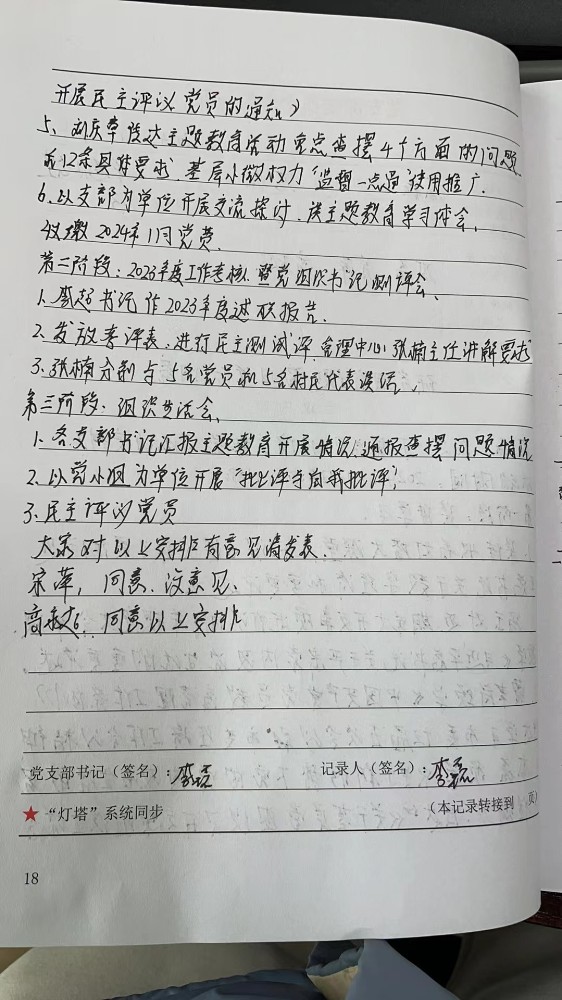 开展民主评议党员的通知》
5、刘庆革传达主题教育活动重点查摆4个方面的问题
和12条具体要求、基层小微权力“监督一点通”使用推广.
6、以支部为单位开展交流探讨,谈主题教育学习体会、
收缴2024年1月党费.
第二阶段:2023年度工作考核、暨党组织书记测评会、
1、李超书记作2023年度述职报告.
2、发放考评表、进行民主测试评,管理中心张楠主任讲解要求
3、张楠分别与5名党员和5名村民代表谈话、
第三阶段:组织生活会、
1、各支部书记汇报主题教育开展情况,通报查摆问题情况
2、以党小组为单位开展“批评与自我批评”
3、民主评议党员
大家对以上安排有意见请发表.
宋萍,同意、没意见.
同意以上安排
党支部书记(签名):李
记录人(签名):李
★“灯塔”系统同步
(本记录转接到 页)
18